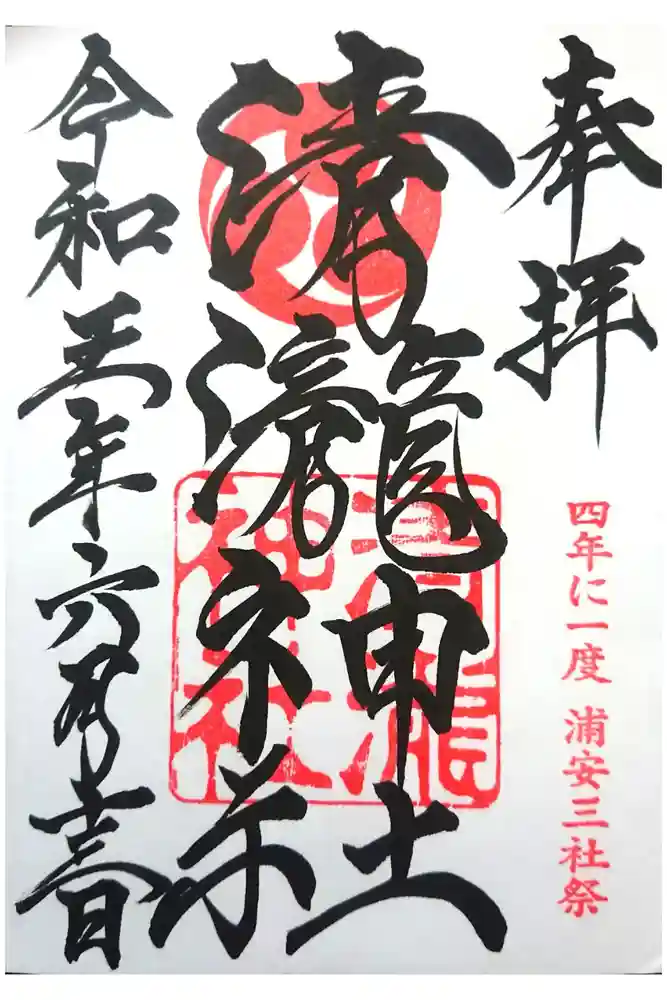 奉拝
四年に一度 浦安三社祭
清瀧神社
清瀧
神社
令和五年六月